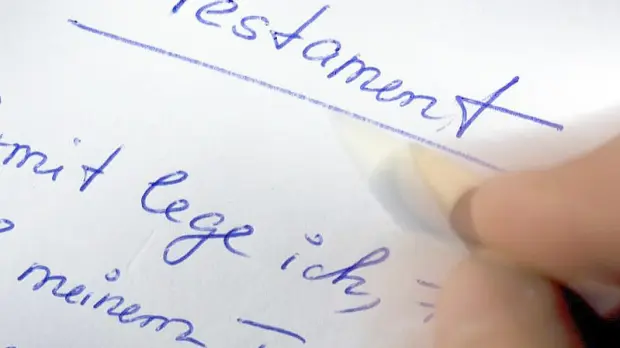 Testament
mit lege ich,
meinem